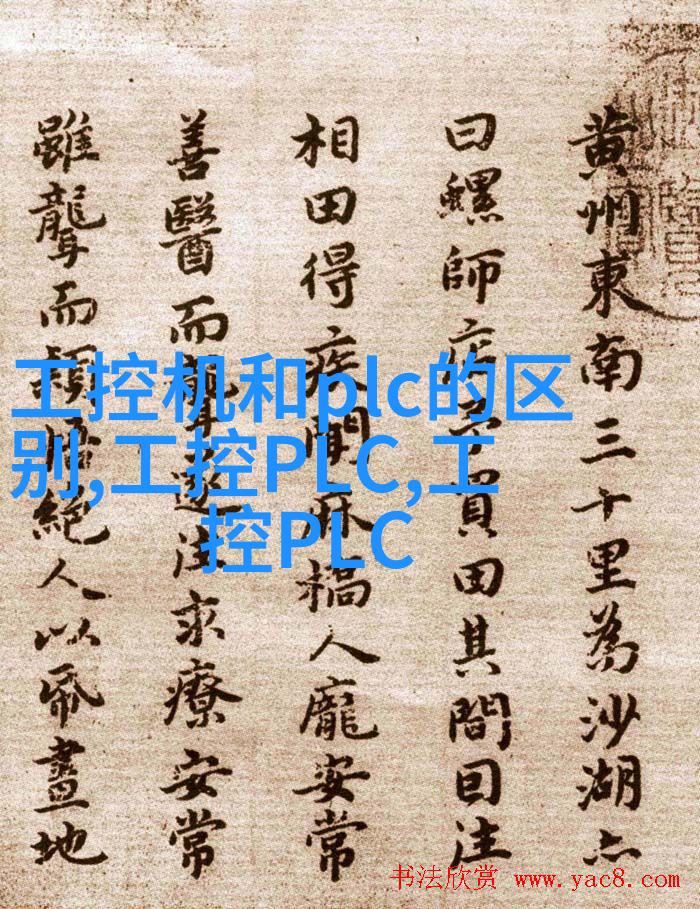 工控机和plc的区
别,工控PLC,工
控PLC
黄州東南三十里為沙湖亦
曰螺師店予買田其間囙往
相田得疾聞麻橋人龐安常
善醫而聾遂往求療安常
雖聾而穎悟絕人以帋畫地
书法欣赏 www.yac8.com